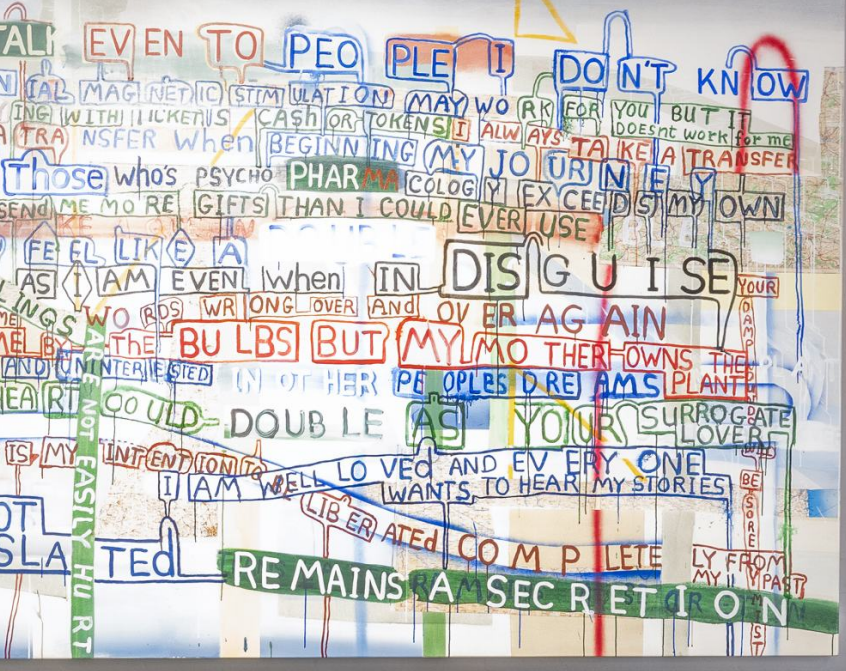 TALK EVEN TO PEOPLE I DON'T KNOW
IAL MAGNETIC STIMULATION MAY WORK FOR YOU BUT IT
DOESNT work for me
ING WITH CASH OR TOKENS I ALWAYS TAKE A TRANSFER
A TRANSFER WHEN BEGINNING MY JOURNEY
Those WHO'S PSYCHOPHARMACOLOGY EXCEEDS MY OWN
SEND ME MORE GIFTS THAN I COULD EVER USE
FEEL LIKE A DOUBLE
AS I AM EVEN When IN DISGUISE
WORDS WRONG OVER AND OVER AGAIN
BY The BULBS BUT MY MOTHER OWNS THE PLANT
AND UNINTERESTED IN OTHER PEOPLES DREAMS
HEART COULD DOUBLE AS YOUR SURROGATE LOVER
IS MY INTENTION TO BE LIBERATED COMPLETELY FROM MY PAST
I AM WELL LOVED AND EVERYONE WANTS TO HEAR MY STORIES
SLATED REMAINS A SECRETION
LINGS ARE NOT EASILY HURT
YOUR
WILL
BE
SORE